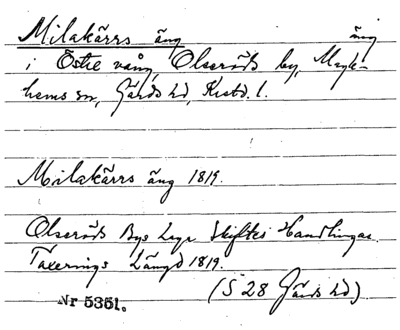 Milakärrs äng äng
i Östre vång, Olseröds by, Magle-
hems sn, Gärds hd, Krstd. l.
Milakärrs äng 1819.
Olseröds Bys Laga Skiftes Handlingar.
Taxerings Längd 1819.
(S 28 Gärds hd)
Nr 5351.